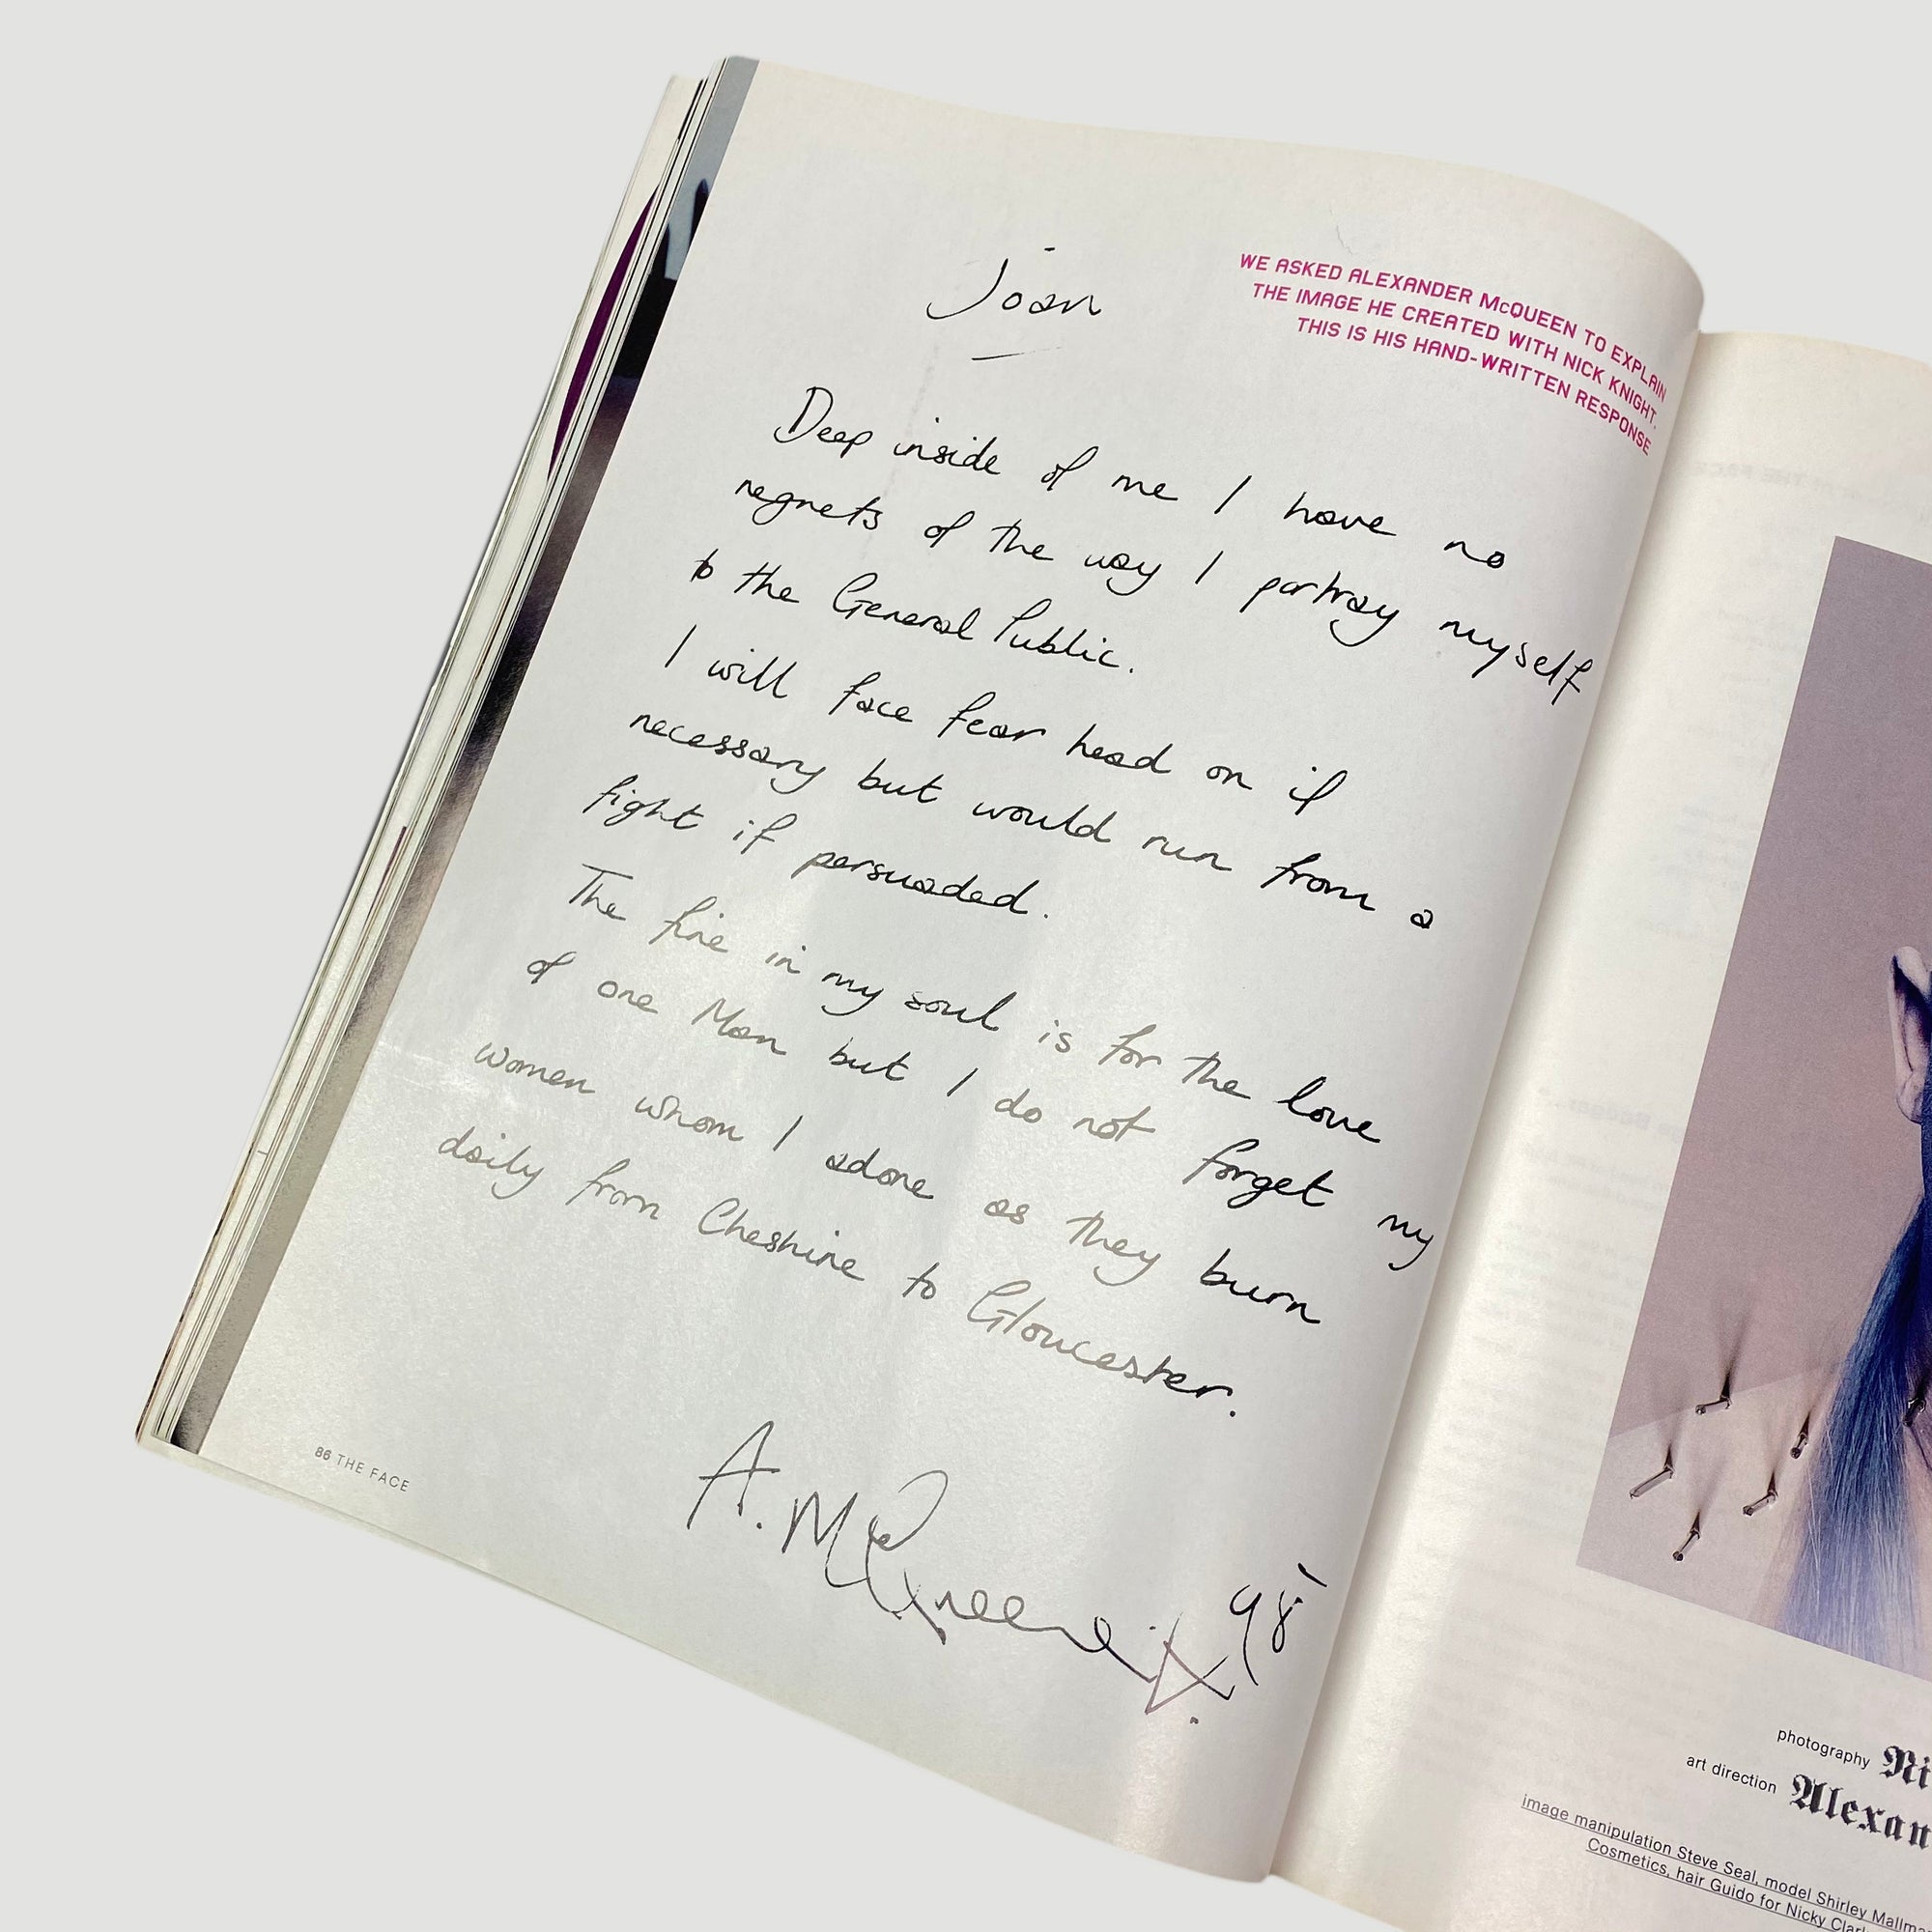 Joan
WE ASKED ALEXANDER McQUEEN TO EXPLAIN
THE IMAGE HE CREATED WITH NICK KNIGHT.
THIS IS HIS HAND-WRITTEN RESPONSE
Deep inside of me I have no
regrets of the way I portray myself
to the General Public.
I will face fear head on if
necessary but would run from a
fight if persuaded.
The fire in my soul is for the love
of one Man but I do not forget my
women whom I adore as they burn
daily from Cheshire to Gloucester.
A. McQueen
98
86 THE FACE
photography Ni
art direction Alexan
image manipulation Steve Seal, model Shirley Mallma
Cosmetics, hair Guido for Nicky Clark